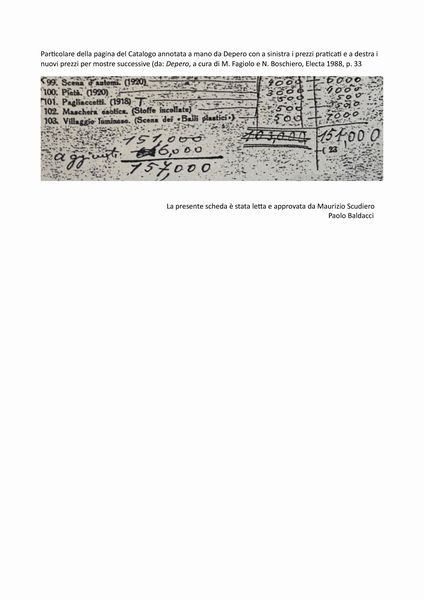 Particolare della pagina del Catalogo annotata a mano da Depero con a sinistra i prezzi praticati e a destra i
nuovi prezzi per mostre successive (da: Depero, a cura di M. Fagiolo e N. Boschiero, Electa 1988, p. 33
99. Scena d'automi. (1920)
100. Pietà. (1920) 4000
101. Pagliaccetti. (1918) 500
102. Maschera esotica. (Stoffe incollate) 500
103. Villaggio luminoso. (Scena dei «Balli plastici») 7000
151,000 103,000 151,000
aggiunti 6,000 (23
157,000
La presente scheda è stata letta e approvata da Maurizio Scudiero
Paolo Baldacci